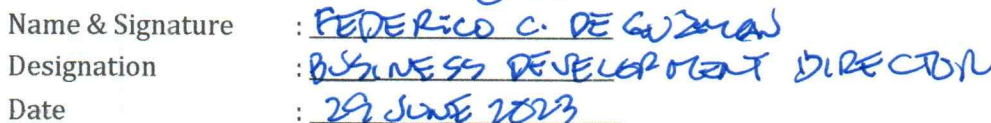 Name & Signature : FEDERICO C. DE GUZMAN
Designation : BUSINESS DEVELOPMENT DIRECTOR
Date : 29 JUNE 2023